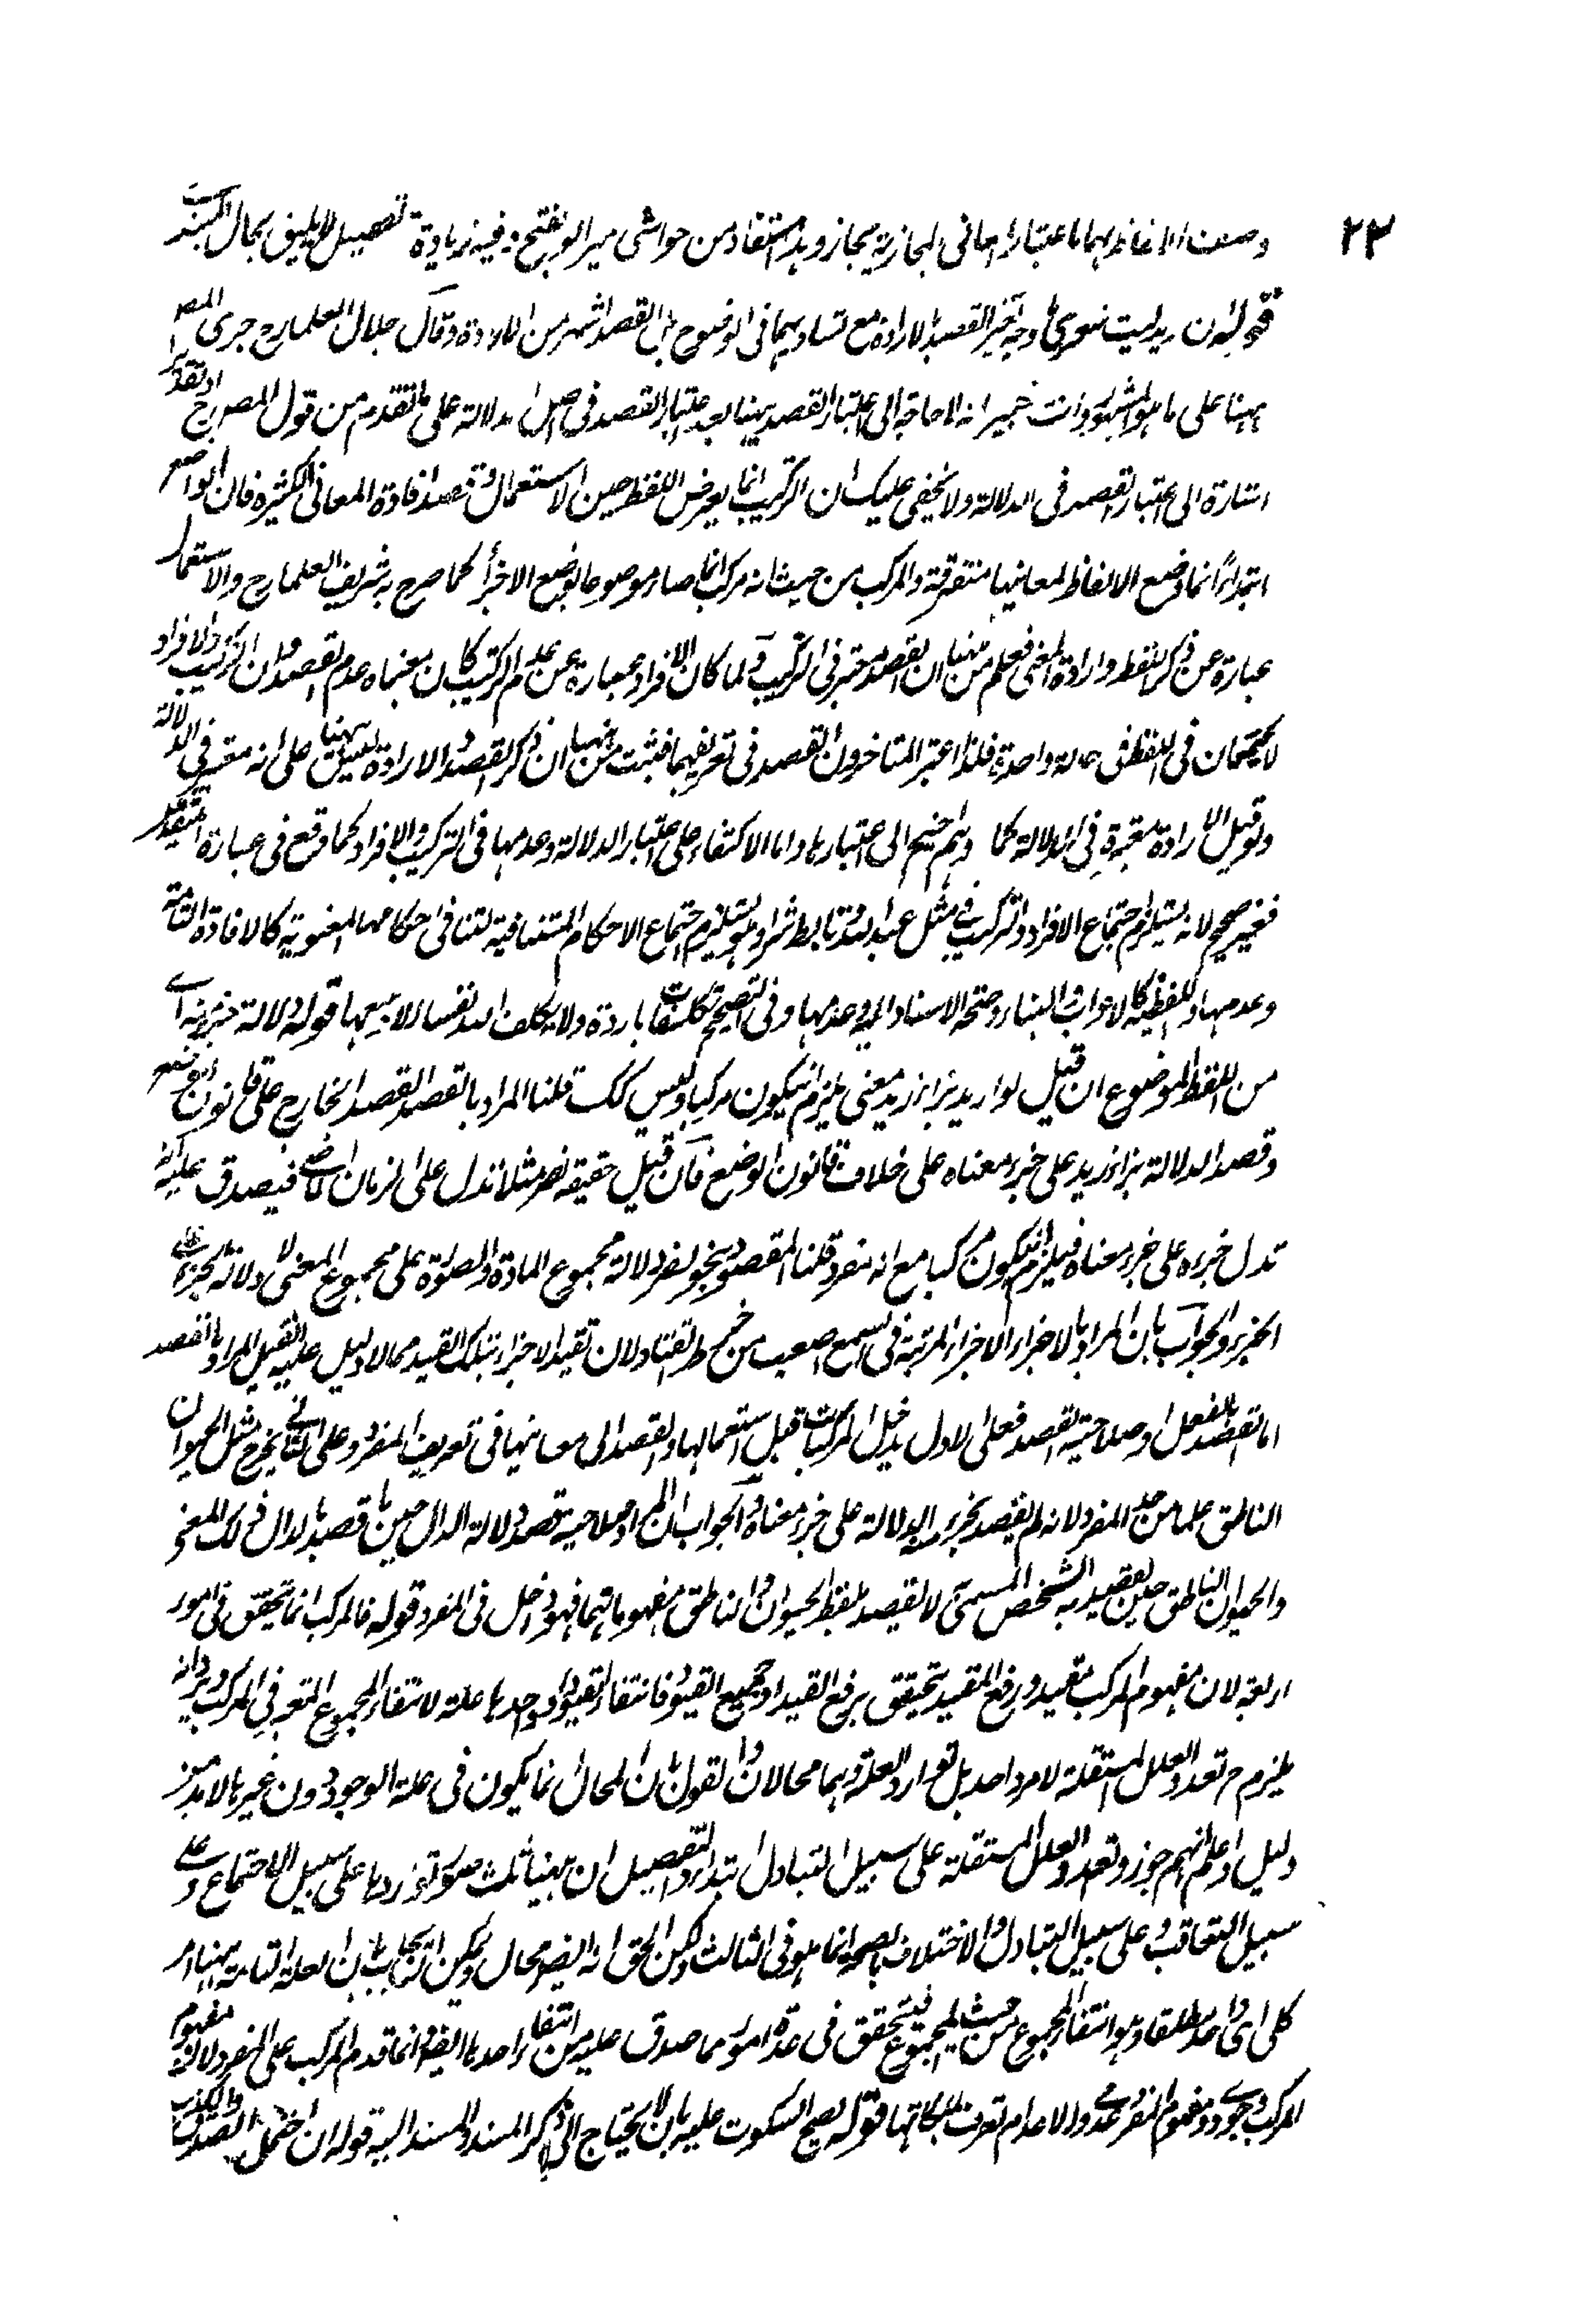 ٢٣
وصف الالفاظ بهما باعتبار المعانى المجازية مجاز وهذا مستفاد من حواشى مير ابو الفتح وفيه زيادة تفصيل لا يليق بحال المبتدى
قوله ان يريد ليت شعرى ما وجه تفسير القصد بالارادة مع تساويهما فى الوضوح بل القصد اشهر من الارادة وقال جلال العلماء رح جرى المص
ههنا على ما هو المشهور وانت خبير انه لا حاجة الى اعتبار القصد ههنا بعد اعتبار القصد فى اصل الدلالة على ما تقدم من قول المص رح او تقدير
اشارة الى اعتبار القصد فى الدلالة ولا يخفى عليك ان التركيب انما يعرض اللفظ حين الاستعمال وقصد افادة المعانى الكثيرة فان الواضع
ابتداءً انما وضع الالفاظ لمعانيها متفرقة والمركب من حيث انه مركب انما صار موضوعا بوضع الاجزأ كما صرح به شريف العلماء رح والاستعمال
عبارة عن ذكر اللفظ وارادة المعنى فعلم من ههنا ان القصد معتبر فى التركيب ولما كان الافراد عبارة عن عدم التركيب كان معناه عدم القصد وان التركيب والافراد
لا يجتمعان فى اللفظ فى حالة واحدة فلذا اعتبر المتاخرون القصد فى تعريفهما فثبت من ههنا ان ذكر القصد والارادة ليس ههنا على انه معتبر فى الدلالة
ولو قيل الارادة معتبرة فى الدلالة لما احتيج الى اعتبارها واما الاكتفاء على اعتبار الدلالة وعدمها فى التركيب والافراد كما وقع فى عبارة المتقدمين
فغير صحيح لانه يستلزم اجتماع الافراد والتركيب فى مثل عبد الله وتابط شرا وهو يستلزم اجتماع الاحكام المتنافية لتنافى احكامهما المعنوية كالافادة التامة
وعدمها واللفظية كالاعراب والبناء وصحة الاسناد اليه وعدمها وفى التصحيح تكلفات باردة ولا يكلف الله نفسا الا وسعها قوله دلالة جزء منه اى
من اللفظ الموضوع ان قيل لو اريد بزاء زيد معنى يلزم ان يكون مركبا وليس كك قلنا المراد بالقصد القصد الجارى على قانون الوضع
وقصد الدلالة بزاء زيد على جزء معناه على خلاف قانون الوضع فان قيل حقيقة نصر مثلا تدل على الزمان الماضى فيصدق عليه انه
تدل جزءه على جزء معناه فيلزم ان يكون مركبا مع انه مفرد قلنا المقصود بنحو نصر دلالة مجموع المادة والصورة على مجموع المعنى لا دلالة الجزء على
الجزء والجواب بان المراد بالاجزاء الاجزاء المرتبة فى السمع اصعب من خرط القتاد لان تقييد الاجزاء بتلك القيد مما لا دليل عليه لو قيل المراد بالقصد
اما القصد بالفعل او صلاحية القصد فعلى الاول يدخل المركبات قبل استعمالها والقصد الى معانيها فى تعريف المفرد وعلى الثانى يخرج مثل الحيوان
الناطق علما من حد المفرد لانه لم يقصد بجزءه الدلالة على جزء معناه والجواب ان المراد صلاحية قصد دلالة الدال حين ما قصد بالدال ذلك المعنى
والحيوان الناطق حين يقصد به الشخص المسمى لا يقصد بلفظ الحيوان والناطق مفهوماتهما فهو داخل فى المفرد قوله فالمركب انما يتحقق فى امور
اربعة لان مفهوم المركب مقيد ورفع المقيد يتحقق برفع القيد او جميع القيود فانتفاء القيود او احدها علة لانتفاء المجموع المعتبر فى المركب ويرد انه
يلزم ح تعدد العلل المستقلة لامر واحد بل توارد العلة وهما محالان والقول بان المحال انما يكون فى علة الوجود دون غيرها لا بد من
دليل واعلم انهم جوزوا تعدد العلل المستقلة على سبيل التبادل ابتداء والتفصيل ان ههنا ثلث صور تواردها على سبيل الاجتماع وعلى
سبيل التعاقب وعلى سبيل التبادل والاختلاف بالصحة انما هو فى الثالث ولكن الحق انه ايضا محال ويمكن ان يجاب بان العلة التامة ههنا امر
كلى اى واحد مطلقا وهو انتفاء المجموع من حيث المجموع فيتحقق فى عدة امور مما صدق عليه من انتفاء احدها ايضا وانما قدم المركب على المفرد لان مفهوم
المركب وجودى ومفهوم المفرد عدمى والاعدام تعرف بملكاتها قوله يصح السكوت عليه بان لا يحتاج الى ذكر المسند والمسند اليه قوله ان احتمل الصدق والكذب